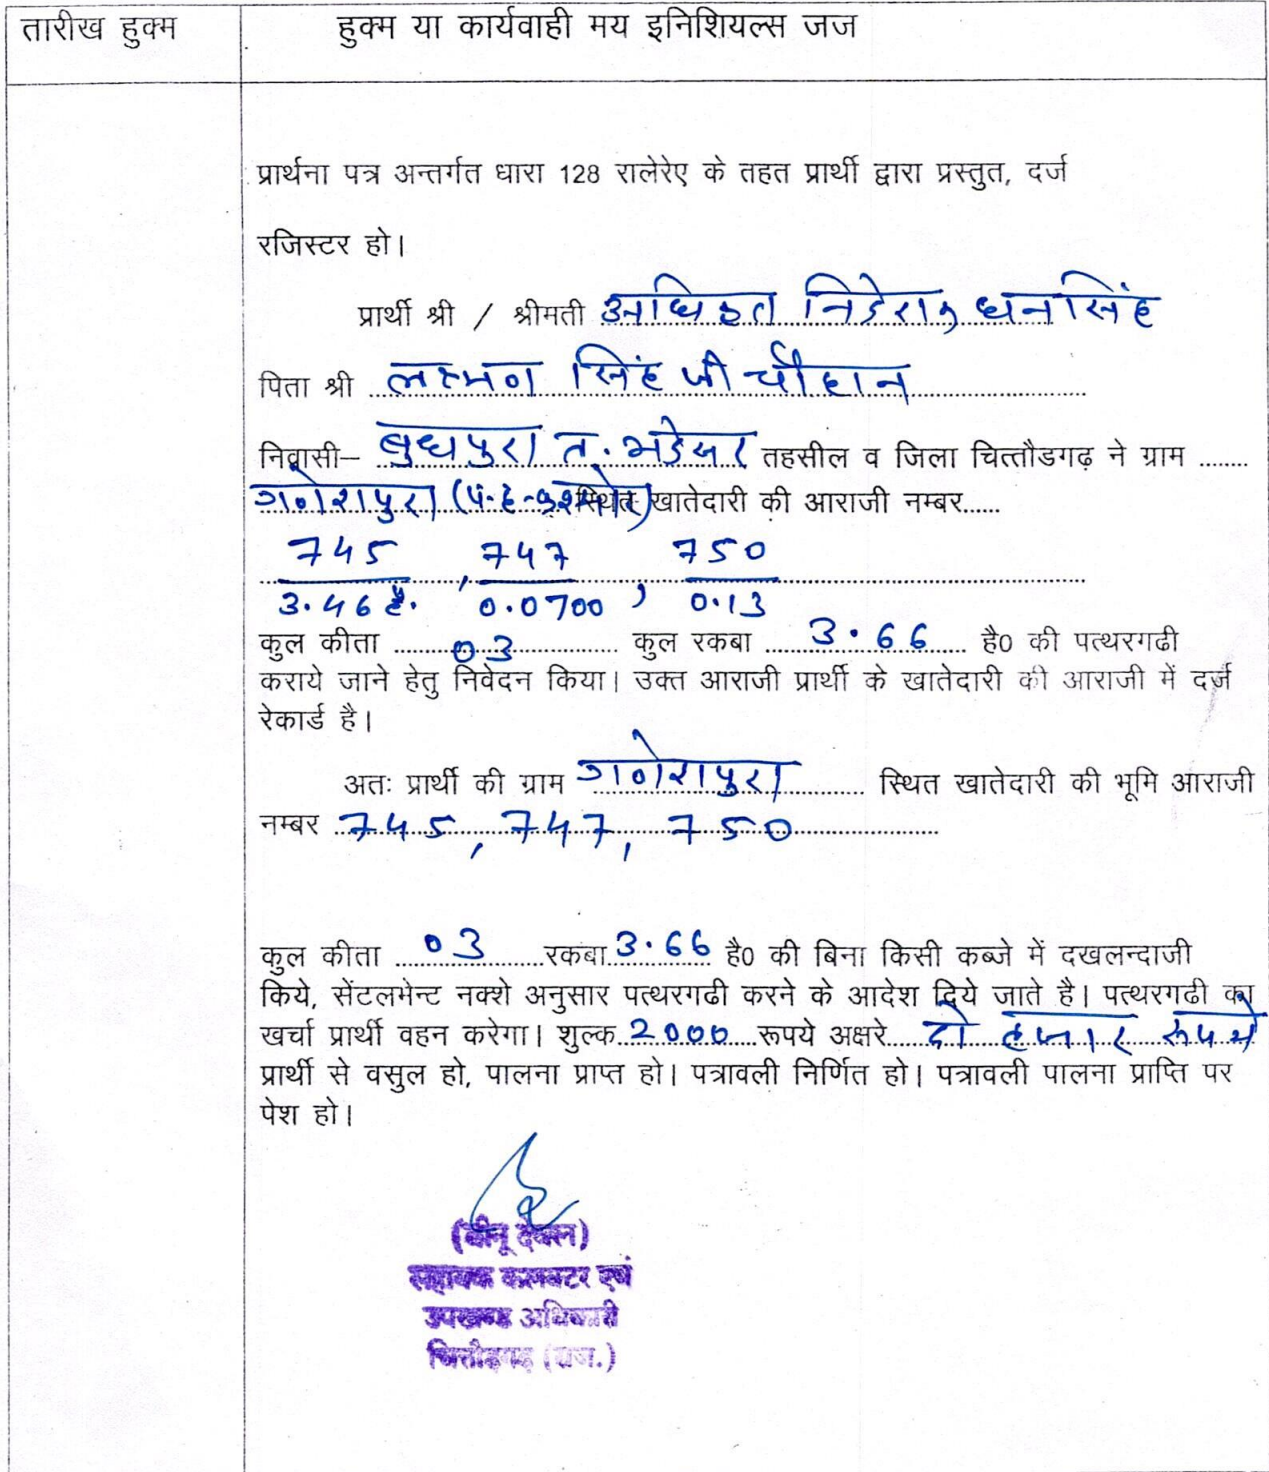 तारीख हुक्म
हुक्म या कार्यवाही मय इनिशियल्स जज
प्रार्थना पत्र अन्तर्गत धारा 128 रालेरेए के तहत प्रार्थी द्वारा प्रस्तुत, दर्ज
रजिस्टर हो।
प्रार्थी श्री / श्रीमती अधिकृत निदेशक धनसिंह
पिता श्री लक्ष्मण सिंह जी चौहान
निवासी– बुधपुरा त. भदेसर तहसील व जिला चित्तौडगढ़ ने ग्राम ........
गणेशपुरा (प.ह. स्थित खातेदारी की आराजी नम्बर......
745 , 747 , 750
3.46 है. 0.0700 0.13
कुल कीता 03 कुल रकबा 3.66 है0 की पत्थरगढी
कराये जाने हेतु निवेदन किया। उक्त आराजी प्रार्थी के खातेदारी की आराजी में दर्ज
रेकार्ड है।
अतः प्रार्थी की ग्राम गणेशपुरा स्थित खातेदारी की भूमि आराजी
नम्बर 745, 747, 750
कुल कीता 03 रकबा 3.66 है0 की बिना किसी कब्जे में दखलन्दाजी
किये, सेंटलमेन्ट नक्शे अनुसार पत्थरगढी करने के आदेश दिये जाते है। पत्थरगढी का
खर्चा प्रार्थी वहन करेगा। शुल्क 2000 रूपये अक्षरे दो हजार रूपये
प्रार्थी से वसुल हो, पालना प्राप्त हो। पत्रावली निर्णित हो। पत्रावली पालना प्राप्ति पर
पेश हो।
(बीनू देवल)
सहायक कलक्टर एवं
उपखण्ड अधिकारी
चित्तौड़गढ़ (राज.)